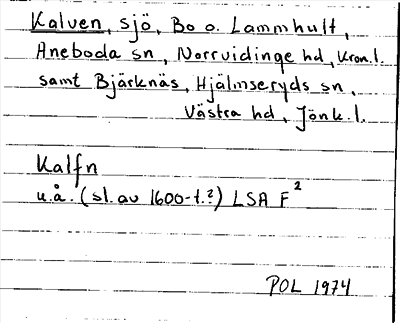 Kalven, sjö, Bo o. Lammhult,
Aneboda sn, Norrvidinge hd, Kron.l.
samt Bjärknäs, Hjälmseryds sn,
Västra hd, Jönk.l.
Kalfn
u.å. (sl. av 1600-t.?) LSA F²
POL 1974